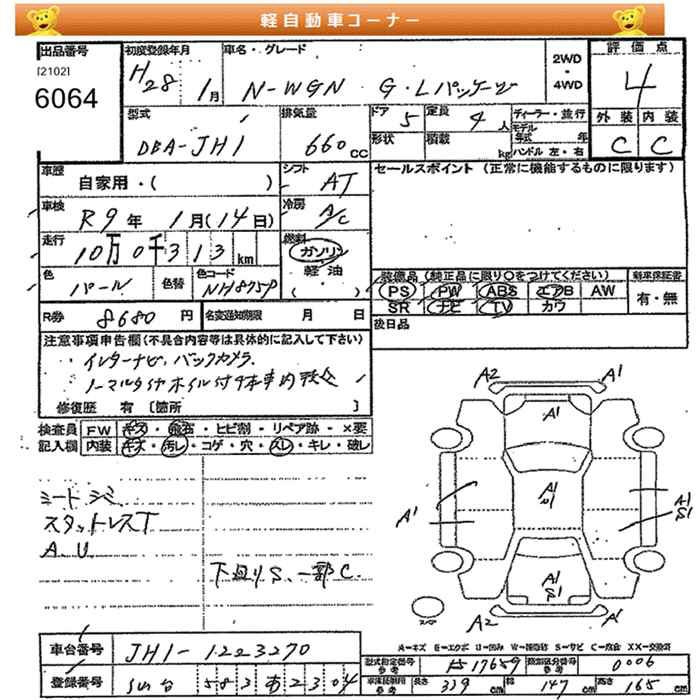 軽自動車コーナー
出品番号 初度登録年月 車名・グレード 2WD・4WD 評価点
[2102] 6064 H28年 1月 N-WGN G・Lパッケージ 4
型式 排気量 ドア 5 定員 4人 ディーラー・並行 外装 内装
DBA-JH1 660cc 形状 積載 kg モデル年式 年 ハンドル 左・右 C C
車歴 自家用・( ) シフト AT セールスポイント (正常に機能するものに限ります)
車検 R9年 1月(14日) 冷房 A/C
走行 10万0千313km 燃料 ガソリン・軽油
色 パール 色替 色コード NH875P
装備品 (純正品に限り○をつけてください) 新車保証書
PS PW ABS エアB AW 有・無
SR ナビ TV カワ
R券 8680円 名変通知期限 月 日 後日品
注意事項申告欄(不具合内容等は具体的に記入して下さい)
インターナビ、バックカメラ
ノーマルタイヤホイル付4本車内
修復歴 有 [箇所 ]
検査員 FW キズ・飛石・ヒビ割・リペア跡・×要
記入欄 内装 キズ・汚レ・コゲ・穴・スレ・キレ・破レ
シートシミ
スタットレスT
A.U
下廻りS、一部C
A2 A1
A1
A1 A1 U1 A1 S1
A1 S1
A2 A1
スペア
A=キズ E=エクボ U=凹み W=補修跡 S=サビ C=腐食 XX=交換済
車台番号 JH1-1223270 型式指定番号 参考 17659 類別区分番号 参考 0006
登録番号 仙台 583 あ 2304 車検証記載 参考 長さ 339 幅 147 高さ 165 cm